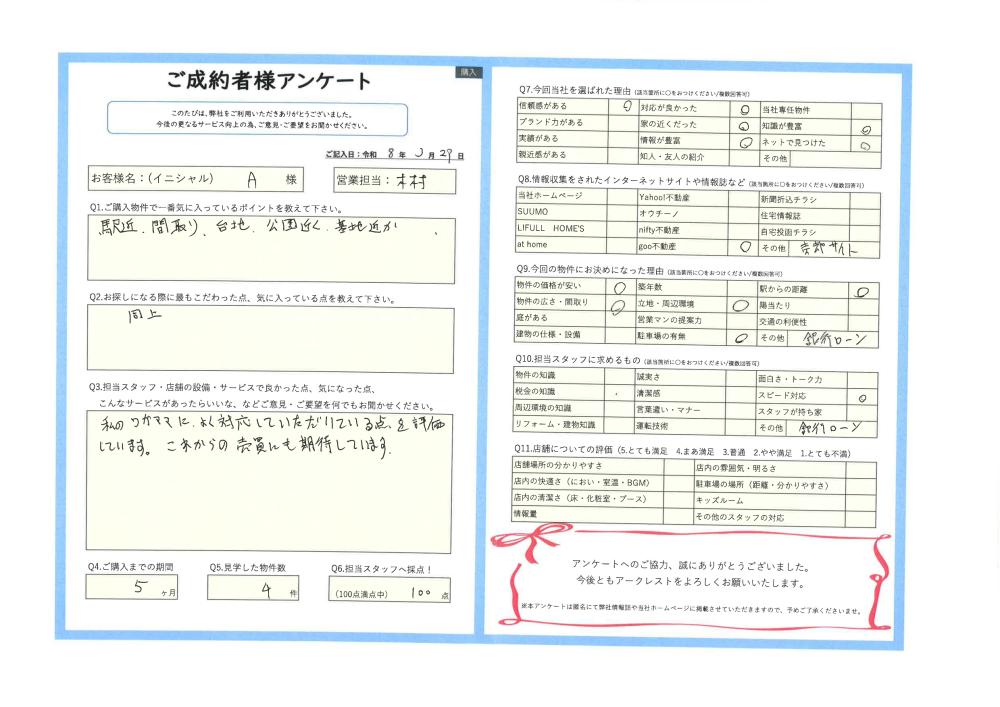 購入
ご成約者様アンケート
このたびは、弊社をご利用いただきありがとうございました。
今後の更なるサービス向上の為、ご意見・ご要望をお聞かせください。
ご記入日：令和 8 年 3 月 29 日
お客様名：（イニシャル） A 様
営業担当：木村
Q1.ご購入物件で一番気に入っているポイントを教えて下さい。
駅近、間取り、台地、公園近く、基地近か
Q2.お探しになる際に最もこだわった点、気に入っている点を教えて下さい。
同上
Q3.担当スタッフ・店舗の設備・サービスで良かった点、気になった点、
こんなサービスがあったらいいな、などご意見・ご要望を何でもお聞かせください。
私のワガママに、よく対応していただけている点を評価
しています。これからの売買にも期待しています。
Q4.ご購入までの期間
5 ヶ月
Q5.見学した物件数
4 件
Q6.担当スタッフへ採点！
(100点満点中) 100 点
Q7.今回当社を選ばれた理由（該当箇所に○をおつけください/複数回答可）
信頼感がある ○ 対応が良かった ○ 当社専任物件
ブランド力がある 家の近くだった ○ 知識が豊富 ○
実績がある 情報が豊富 ○ ネットで見つけた ○
親近感がある 知人・友人の紹介 その他
Q8.情報収集をされたインターネットサイトや情報誌など（該当箇所に○をおつけください/複数回答可）
当社ホームページ Yahoo!不動産 新聞折込チラシ
SUUMO オウチーノ 住宅情報誌
LIFULL HOME'S nifty不動産 自宅投函チラシ
at home goo不動産 ○ その他 サイト
Q9.今回の物件にお決めになった理由（該当箇所に○をおつけください/複数回答可）
物件の価格が安い ○ 築年数 駅からの距離 ○
物件の広さ・間取り ○ 立地・周辺環境 ○ 陽当たり
庭がある 営業マンの提案力 交通の利便性
建物の仕様・設備 駐車場の有無 ○ その他 銀行ローン
Q10.担当スタッフに求めるもの（該当箇所に○をおつけください/複数回答可）
物件の知識 誠実さ 面白さ・トーク力
税金の知識 清潔感 スピード対応 ○
周辺環境の知識 言葉遣い・マナー スタッフが持ち家
リフォーム・建物知識 運転技術 その他 銀行ローン
Q11.店舗についての評価（5.とても満足 4.まあ満足 3.普通 2.やや満足 1.とても不満）
店舗場所の分かりやすさ 店内の雰囲気・明るさ
店内の快適さ（におい・室温・BGM） 駐車場の場所（距離・分かりやすさ）
店内の清潔さ（床・化粧室・ブース） キッズルーム
情報量 その他のスタッフの対応
アンケートへのご協力、誠にありがとうございました。
今後ともアークレストをよろしくお願いいたします。
※本アンケートは匿名にて弊社情報誌や当社ホームページに掲載させていただきますので、予めご了承くださいませ。